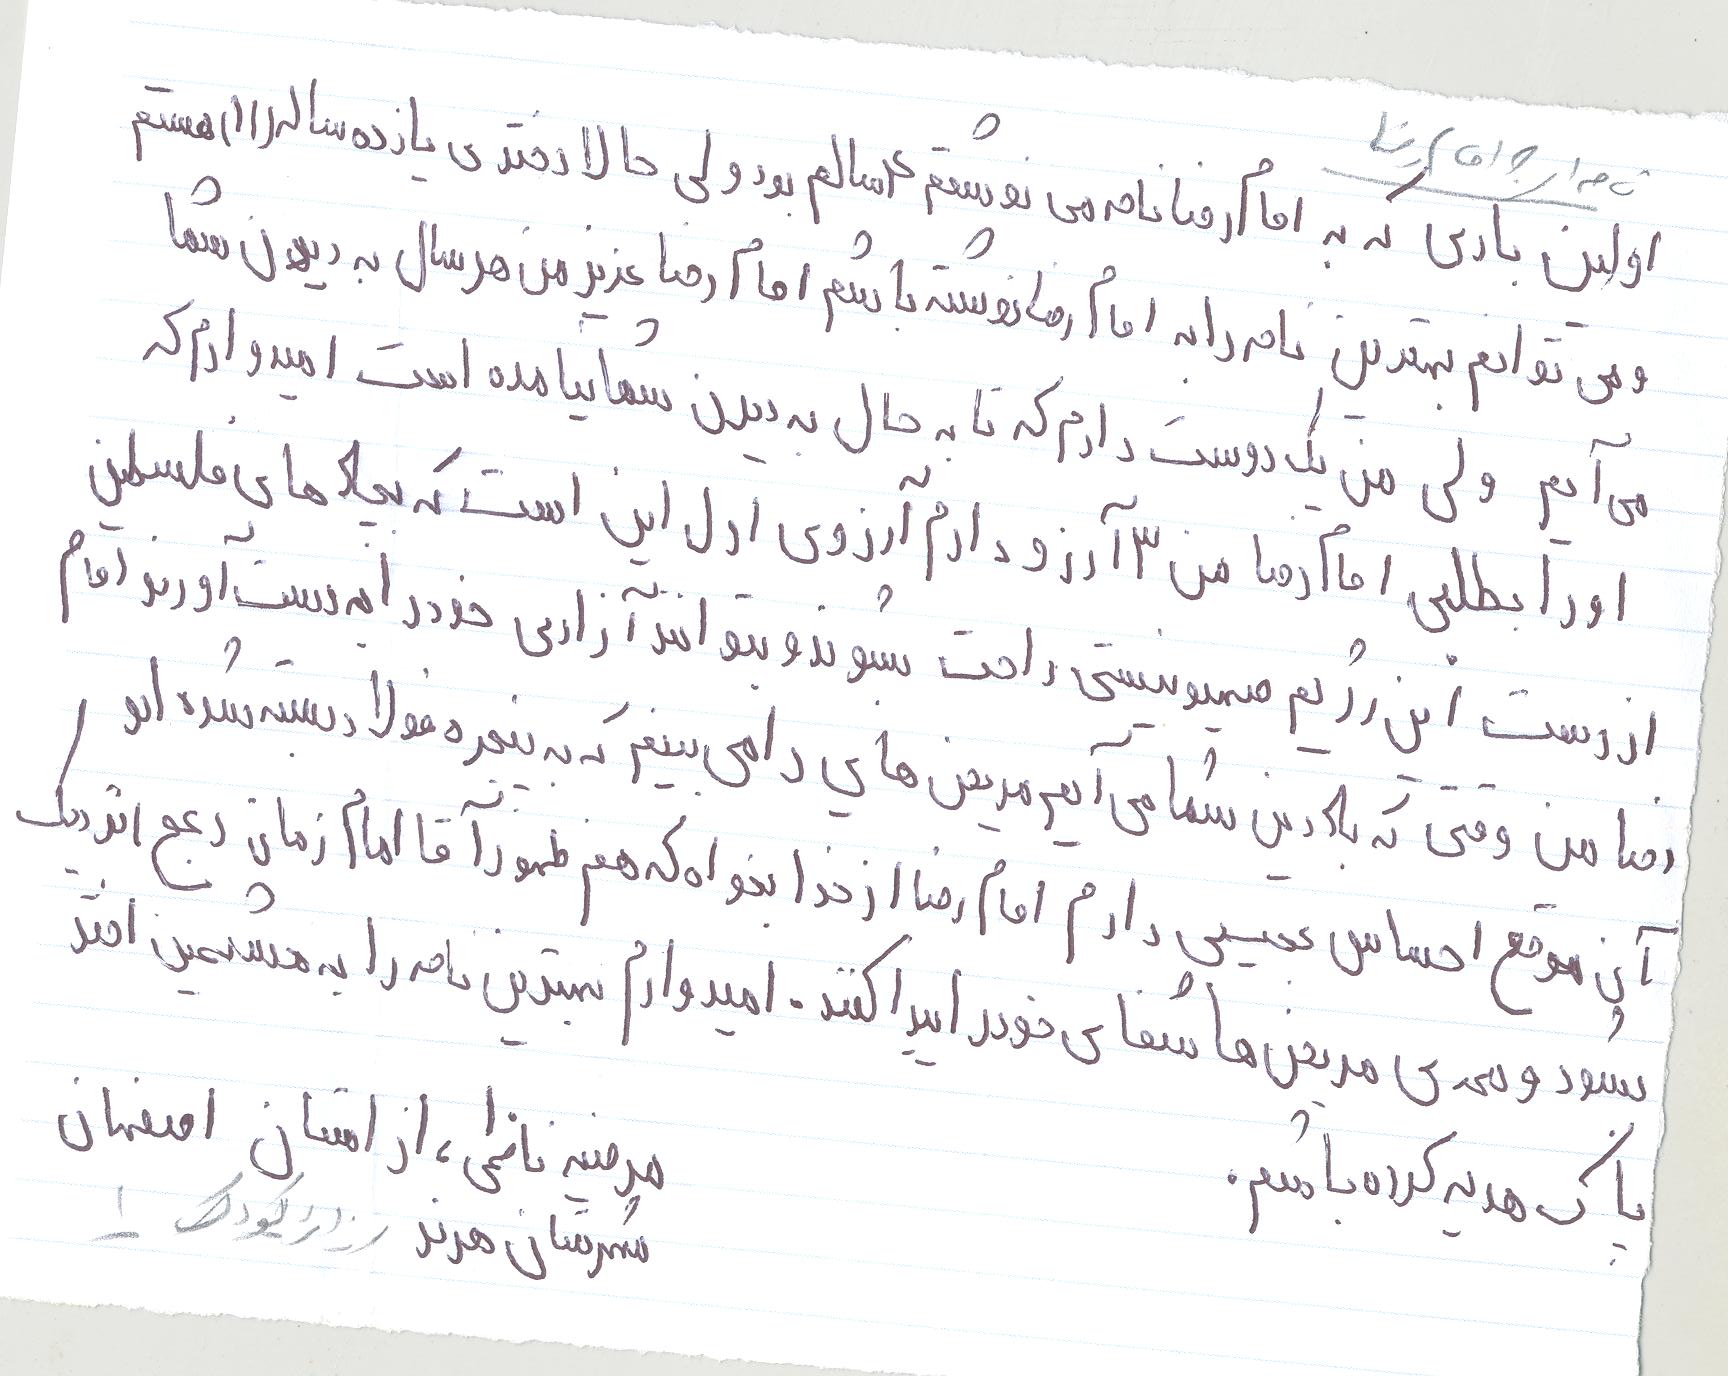 نامه ای به امام رضا
اولین باری که به امام رضا نامه می نوشتم ۶ سالم بود ولی حالا دختری یازده ساله (۱۱) هستم
و می توانم بهترین نامه را به امام رضا نوشته باشم امام رضا عزیز من هر سال به دیدن شما
می آیم ولی من یک دوست دارم که تا به حال به دیدن شما نیامده است امیدوارم که
او را بطلبی امام رضا من ۳ آرزو دارم آرزوی اول این است که بچه های فلسطین
از دست این رژیم صهیونیستی راحت شوند و بتوانند آزادی خود را به دست آورند امام
رضا من وقتی که به دیدن شما می آیم مریض هایی را می بینم که به پنجره فولاد بسته شده اند
آن موقع احساس عجیبی دارم امام رضا از خدا بخواه که هم ظهور آقا امام زمان (عج) نزدیک
بشود و همه ی مریض ها شفای خود را پیدا کنند. امیدوارم بهترین نامه را به هشتمین اختر
پاک هدیه کرده باشم.
مرضیه ناظمی، از استان اصفهان
شهرستان هرند زائر کودک ۱